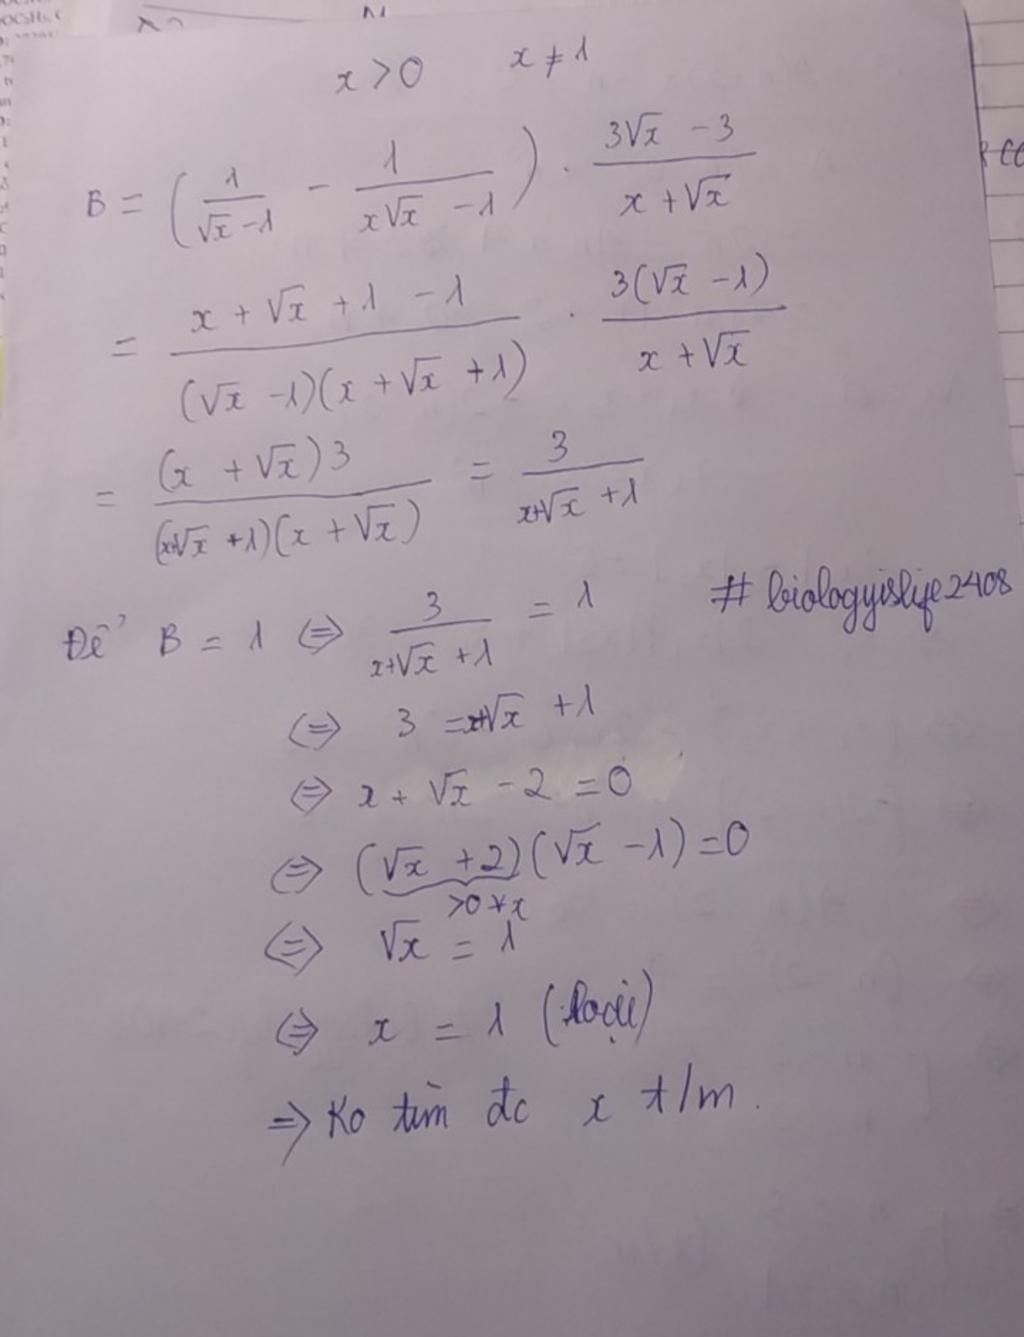 x > 0 x ≠ 1
B = (1/(√x - 1) - 1/(x√x - 1)) . (3√x - 3)/(x + √x)
= (x + √x + 1 - 1)/((√x - 1)(x + √x + 1)) . 3(√x - 1)/(x + √x)
= (x + √x)3/((x+√x + 1)(x + √x)) = 3/(x+√x + 1)
Để B = 1 ⇔ 3/(x+√x + 1) = 1 # biologyislife2408
⇔ 3 = x+√x + 1
⇔ x + √x - 2 = 0
⇔ (√x + 2)(√x - 1) = 0
>0 ∀x
⇔ √x = 1
⇔ x = 1 (loại)
⇒ Ko tìm đc x t/m.